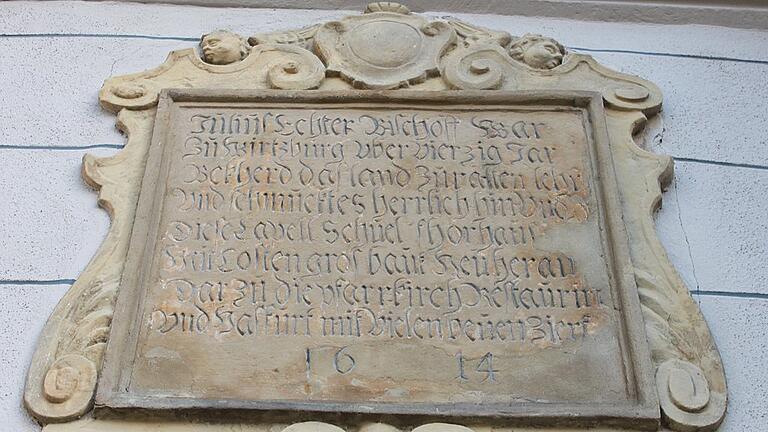 Julius Echter Bischoff War
Zu Wirtzburg Vber Vierzig Jar
Bekherd das land
Vnd schmucktes herrlich hin Vnd
Diese Capell Schuel thorhaus
Mit Costen gros baut Neu herau
Dar Zu die pfarrkirch Restaurirt
Vnd Vast mit Vielen neuen Ziert
16 14